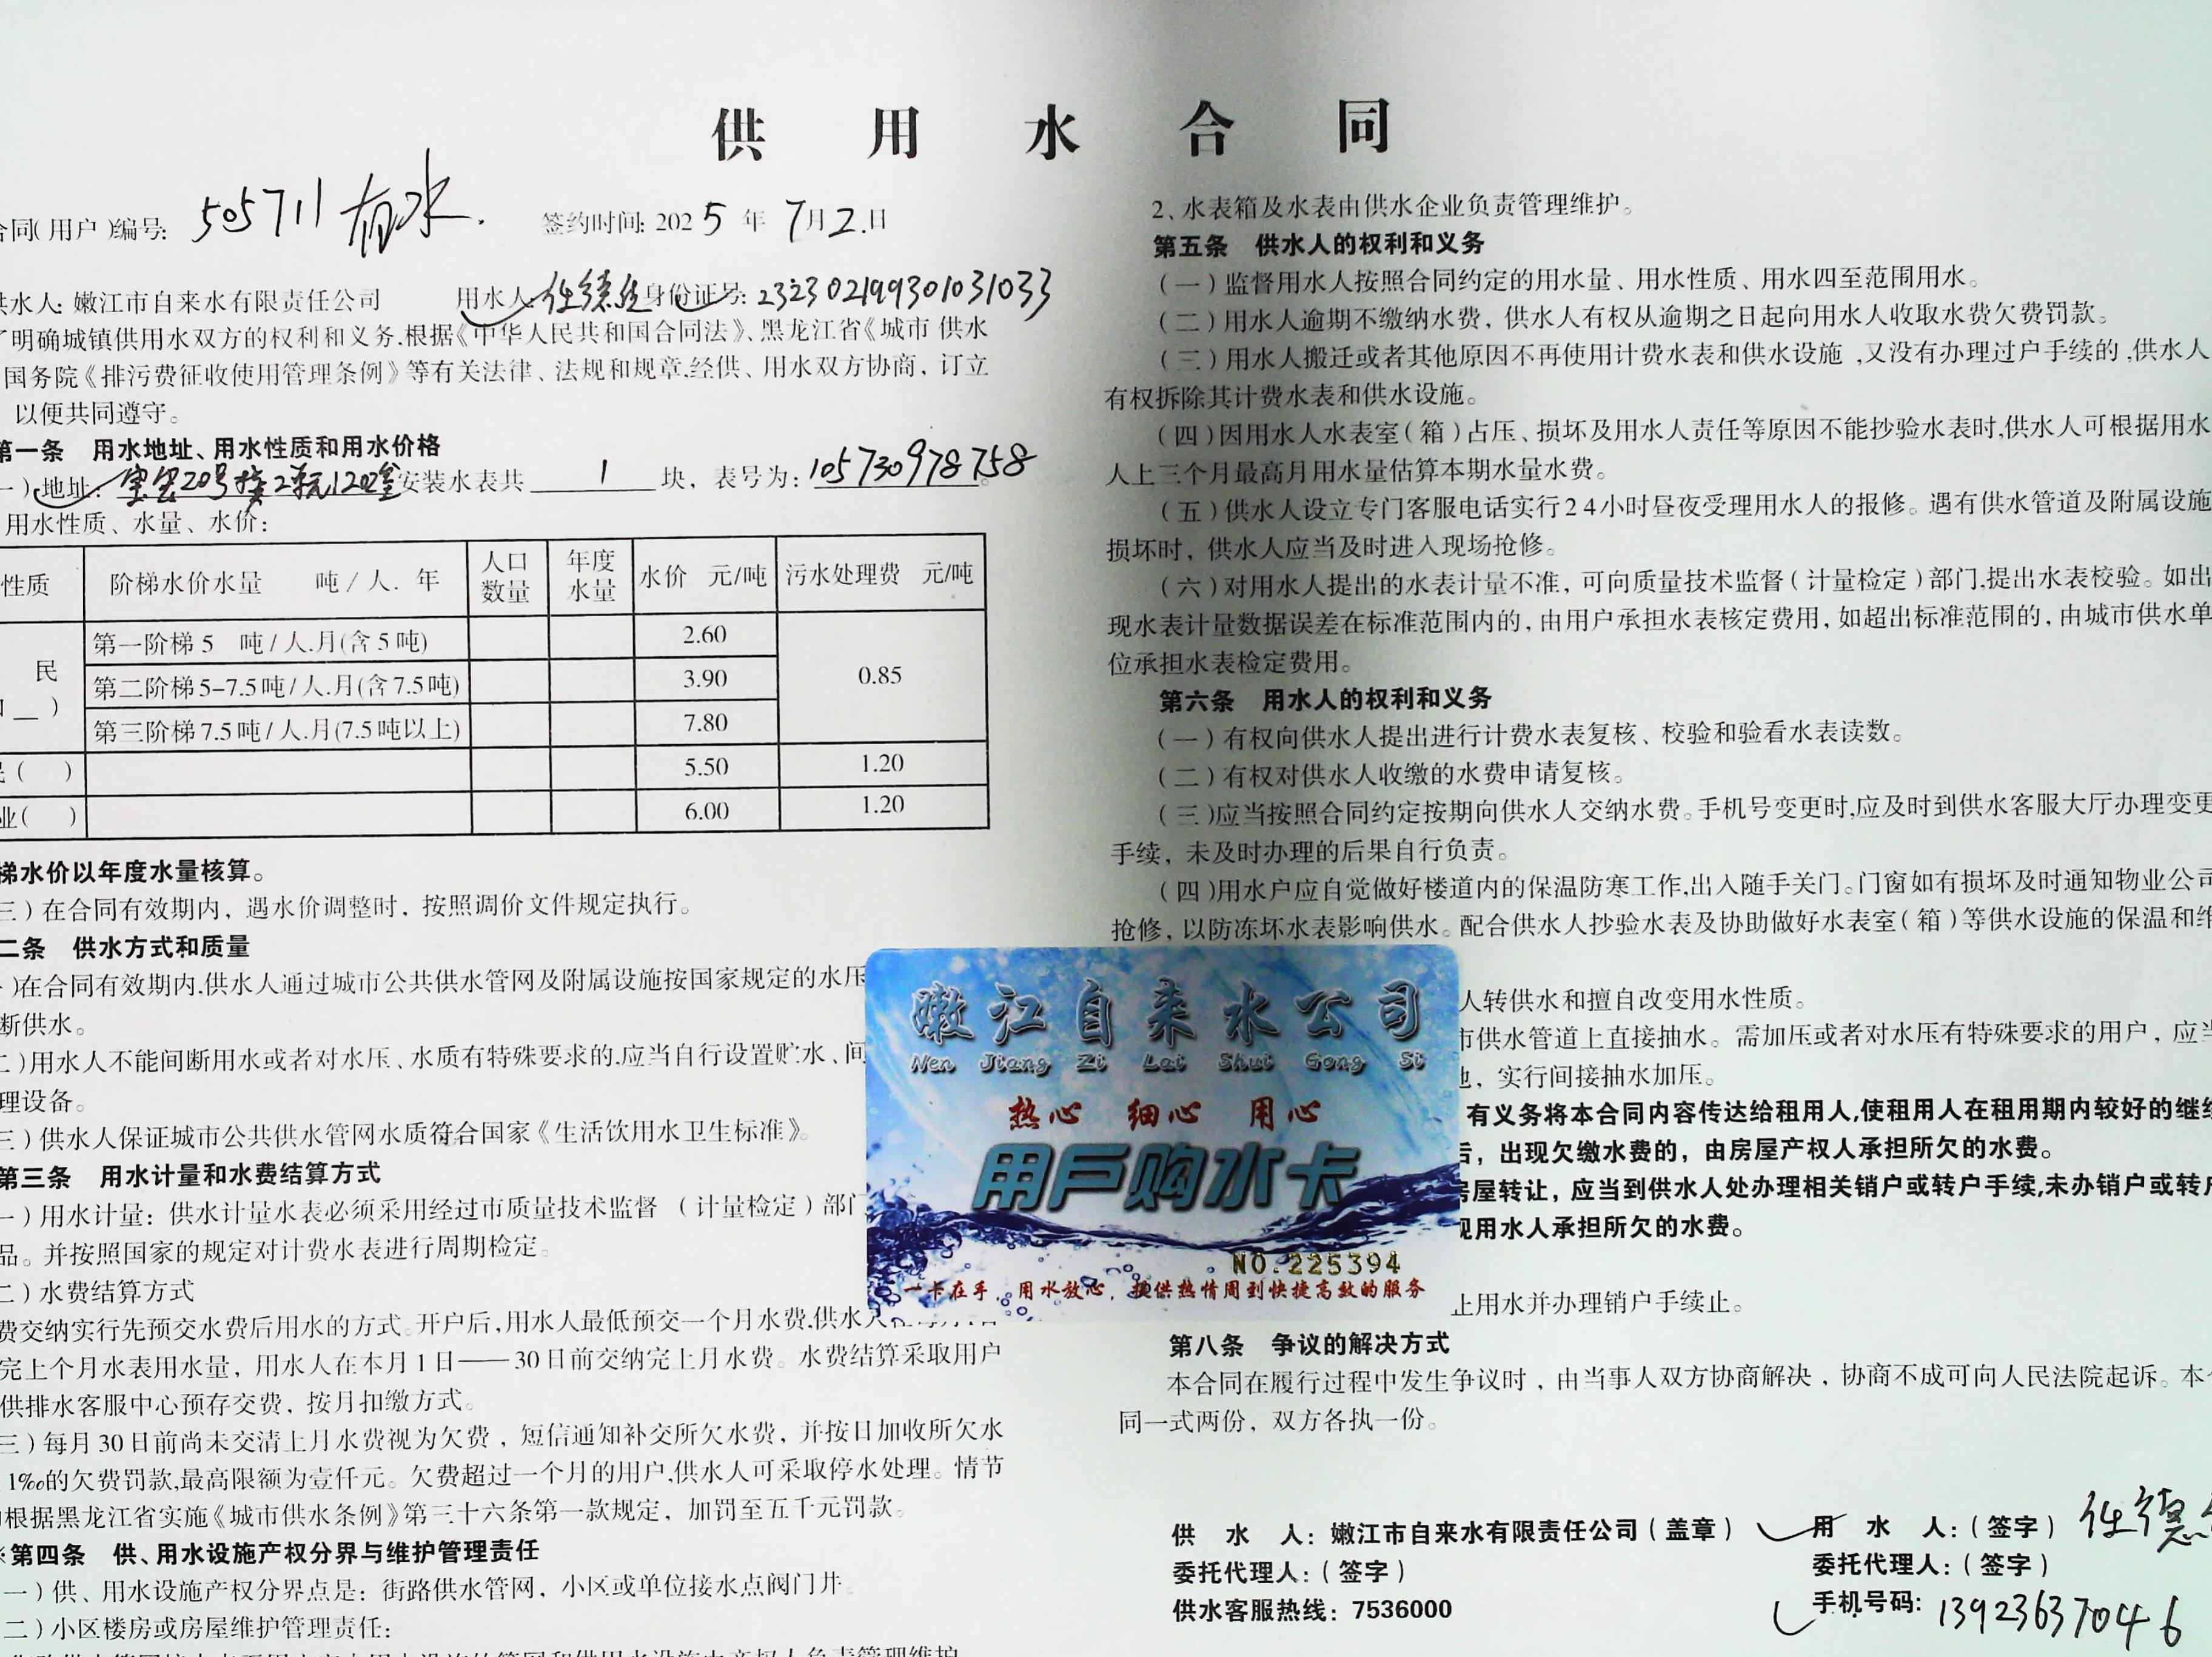 供用水合同
合同(用户)编号: 505711 有水.
签约时间: 2025年7月2.日
供水人: 嫩江市自来水有限责任公司 用水人: 任德 身份证号: 232302199301031033
了明确城镇供用水双方的权利和义务.根据《中华人民共和国合同法》、黑龙江省《城市 供水
国务院《排污费征收使用管理条例》等有关法律、法规和规章.经供、用水双方协商，订立
以便共同遵守。
第一条 用水地址、用水性质和用水价格
一)地址: 20号楼2单元1202室安装水表共 1 块，表号为: 105730978758。
用水性质、水量、水价:
性质 阶梯水价水量 吨/人. 年 人口数量 年度水量 水价 元/吨 污水处理费 元/吨
民 第一阶梯 5 吨/人.月(含 5 吨) 2.60 0.85
第二阶梯 5-7.5 吨/人.月(含 7.5 吨) 3.90
第三阶梯 7.5 吨/人.月(7.5 吨以上) 7.80
民( ) 5.50 1.20
业( ) 6.00 1.20
梯水价以年度水量核算。
三)在合同有效期内，遇水价调整时，按照调价文件规定执行。
二条 供水方式和质量
)在合同有效期内.供水人通过城市公共供水管网及附属设施按国家规定的水压
断供水。
二)用水人不能间断用水或者对水压、水质有特殊要求的.应当自行设置贮水、间
理设备。
三)供水人保证城市公共供水管网水质符合国家《生活饮用水卫生标准》。
第三条 用水计量和水费结算方式
一)用水计量：供水计量水表必须采用经过市质量技术监督 (计量检定)部门
品。并按照国家的规定对计费水表进行周期检定。
二)水费结算方式
费交纳实行先预交水费后用水的方式.开户后,用水人最低预交一个月水费.供水人
完上个月水表用水量，用水人在本月 1 日——30 日前交纳完上月水费。水费结算采取用户
供排水客服中心预存交费，按月扣缴方式。
三)每月 30 日前尚未交清上月水费视为欠费，短信通知补交所欠水费，并按日加收所欠水
1‰的欠费罚款,最高限额为壹仟元。欠费超过一个月的用户,供水人可采取停水处理。情节
根据黑龙江省实施《城市供水条例》第三十六条第一款规定，加罚至五千元罚款。
第四条 供、用水设施产权分界与维护管理责任
一)供、用水设施产权分界点是：街路供水管网，小区或单位接水点阀门井。
二)小区楼房或房屋维护管理责任:
2、水表箱及水表由供水企业负责管理维护。
第五条 供水人的权利和义务
(一)监督用水人按照合同约定的用水量、用水性质、用水四至范围用水。
(二)用水人逾期不缴纳水费，供水人有权从逾期之日起向用水人收取水费欠费罚款。
(三)用水人搬迁或者其他原因不再使用计费水表和供水设施,又没有办理过户手续的,供水人
有权拆除其计费水表和供水设施。
(四)因用水人水表室(箱)占压、损坏及用水人责任等原因不能抄验水表时,供水人可根据用水
人上三个月最高月用水量估算本期水量水费。
(五)供水人设立专门客服电话实行24小时昼夜受理用水人的报修。遇有供水管道及附属设施
损坏时，供水人应当及时进入现场抢修。
(六)对用水人提出的水表计量不准，可向质量技术监督(计量检定)部门,提出水表校验。如出
现水表计量数据误差在标准范围内的，由用户承担水表核定费用，如超出标准范围的，由城市供水单
位承担水表检定费用。
第六条 用水人的权利和义务
(一)有权向供水人提出进行计费水表复核、校验和验看水表读数。
(二)有权对供水人收缴的水费申请复核。
(三)应当按照合同约定按期向供水人交纳水费。手机号变更时,应及时到供水客服大厅办理变更
手续，未及时办理的后果自行负责。
(四)用水户应自觉做好楼道内的保温防寒工作,出入随手关门。门窗如有损坏及时通知物业公司
抢修，以防冻坏水表影响供水。配合供水人抄验水表及协助做好水表室(箱)等供水设施的保温和维
人转供水和擅自改变用水性质。
市供水管道上直接抽水。需加压或者对水压有特殊要求的用户，应当
，实行间接抽水加压。
有义务将本合同内容传达给租用人,使租用人在租用期内较好的继续
后，出现欠缴水费的，由房屋产权人承担所欠的水费。
房屋转让，应当到供水人处办理相关销户或转户手续,未办销户或转户
现用水人承担所欠的水费。
止用水并办理销户手续止。
第八条 争议的解决方式
本合同在履行过程中发生争议时，由当事人双方协商解决，协商不成可向人民法院起诉。本合
同一式两份，双方各执一份。
供 水 人：嫩江市自来水有限责任公司(盖章)
委托代理人：(签字)
供水客服热线：7536000
用 水 人：(签字) 任德
委托代理人：(签字)
手机号码: 13923637046
嫩江自来水公司
Nen Jiang Zi Lai Shui Gong Si
热心 细心 用心
用户购水卡
NO.225394
一卡在手，用水放心，提供热情周到快捷高效的服务